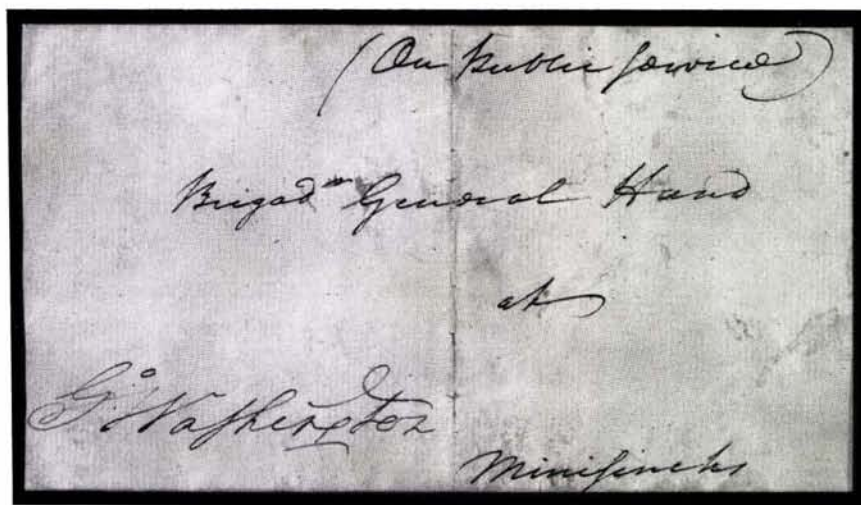 (On Public Service)
Brigadr General Hand
at
Go Washington
Minisincks